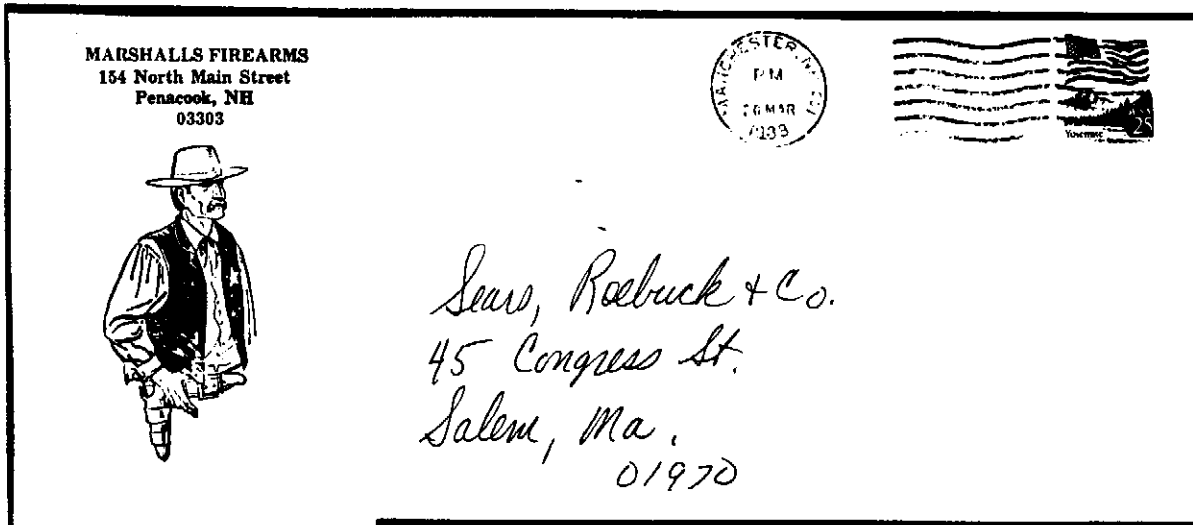 MARSHALLS FIREARMS
154 North Main Street
Penacook, NH
03303
MANCHESTER, NH
PM
MAR
Yosemite
25
Sears, Roebuck + Co.
45 Congress St.
Salem, Ma.
01970